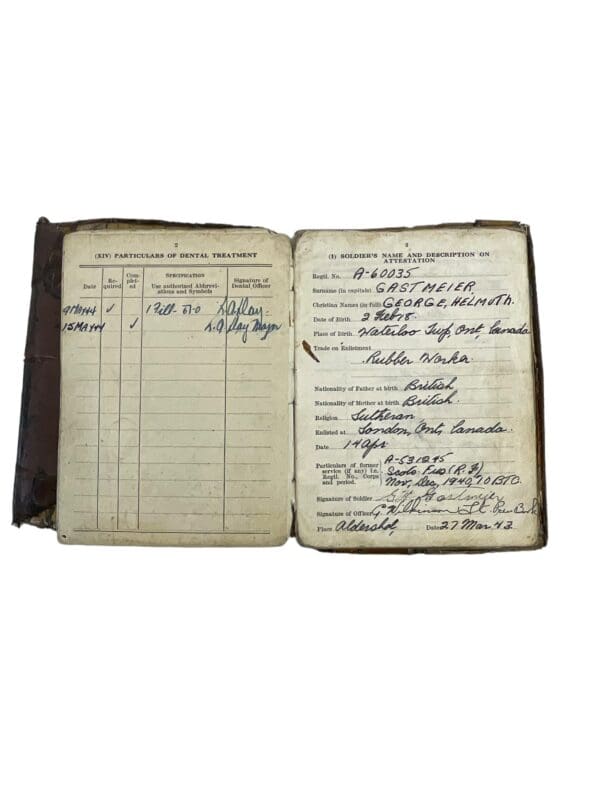 2
(XIV) PARTICULARS OF DENTAL TREATMENT
Date
Re-quired
Com-plet-ed
SPECIFICATION
Use authorized Abbrevi-ations and Symbols
Signature of Dental Officer
9 MAY 44 ✓ 1 Fill-
15 MAY 44 ✓ Major
3
(I) SOLDIER'S NAME AND DESCRIPTION ON
ATTESTATION
Regtl. No. A-60035
Surname (in capitals) GASTMEIER.
Christian Names (in full) GEORGE, HELMUTH.
Date of Birth 2 Feb 18.
Place of Birth Waterloo Twp, Ont, Canada
Trade on Enlistment
Rubber Worker.
Nationality of Father at birth British
Nationality of Mother at birth British.
Religion Lutheran
Enlisted at London, Ont, Canada.
Date 14 Apr
Particulars of former
service (if any) i.e.
Regtl. No., Corps
and period.
A-531245
Scots. Fus (R.F)
Nov, Dec, 1940, 10 BTC.
Signature of Soldier G H Gastmeier
Signature of Officer Lt
Place Aldershot, Date 27 Mar 43